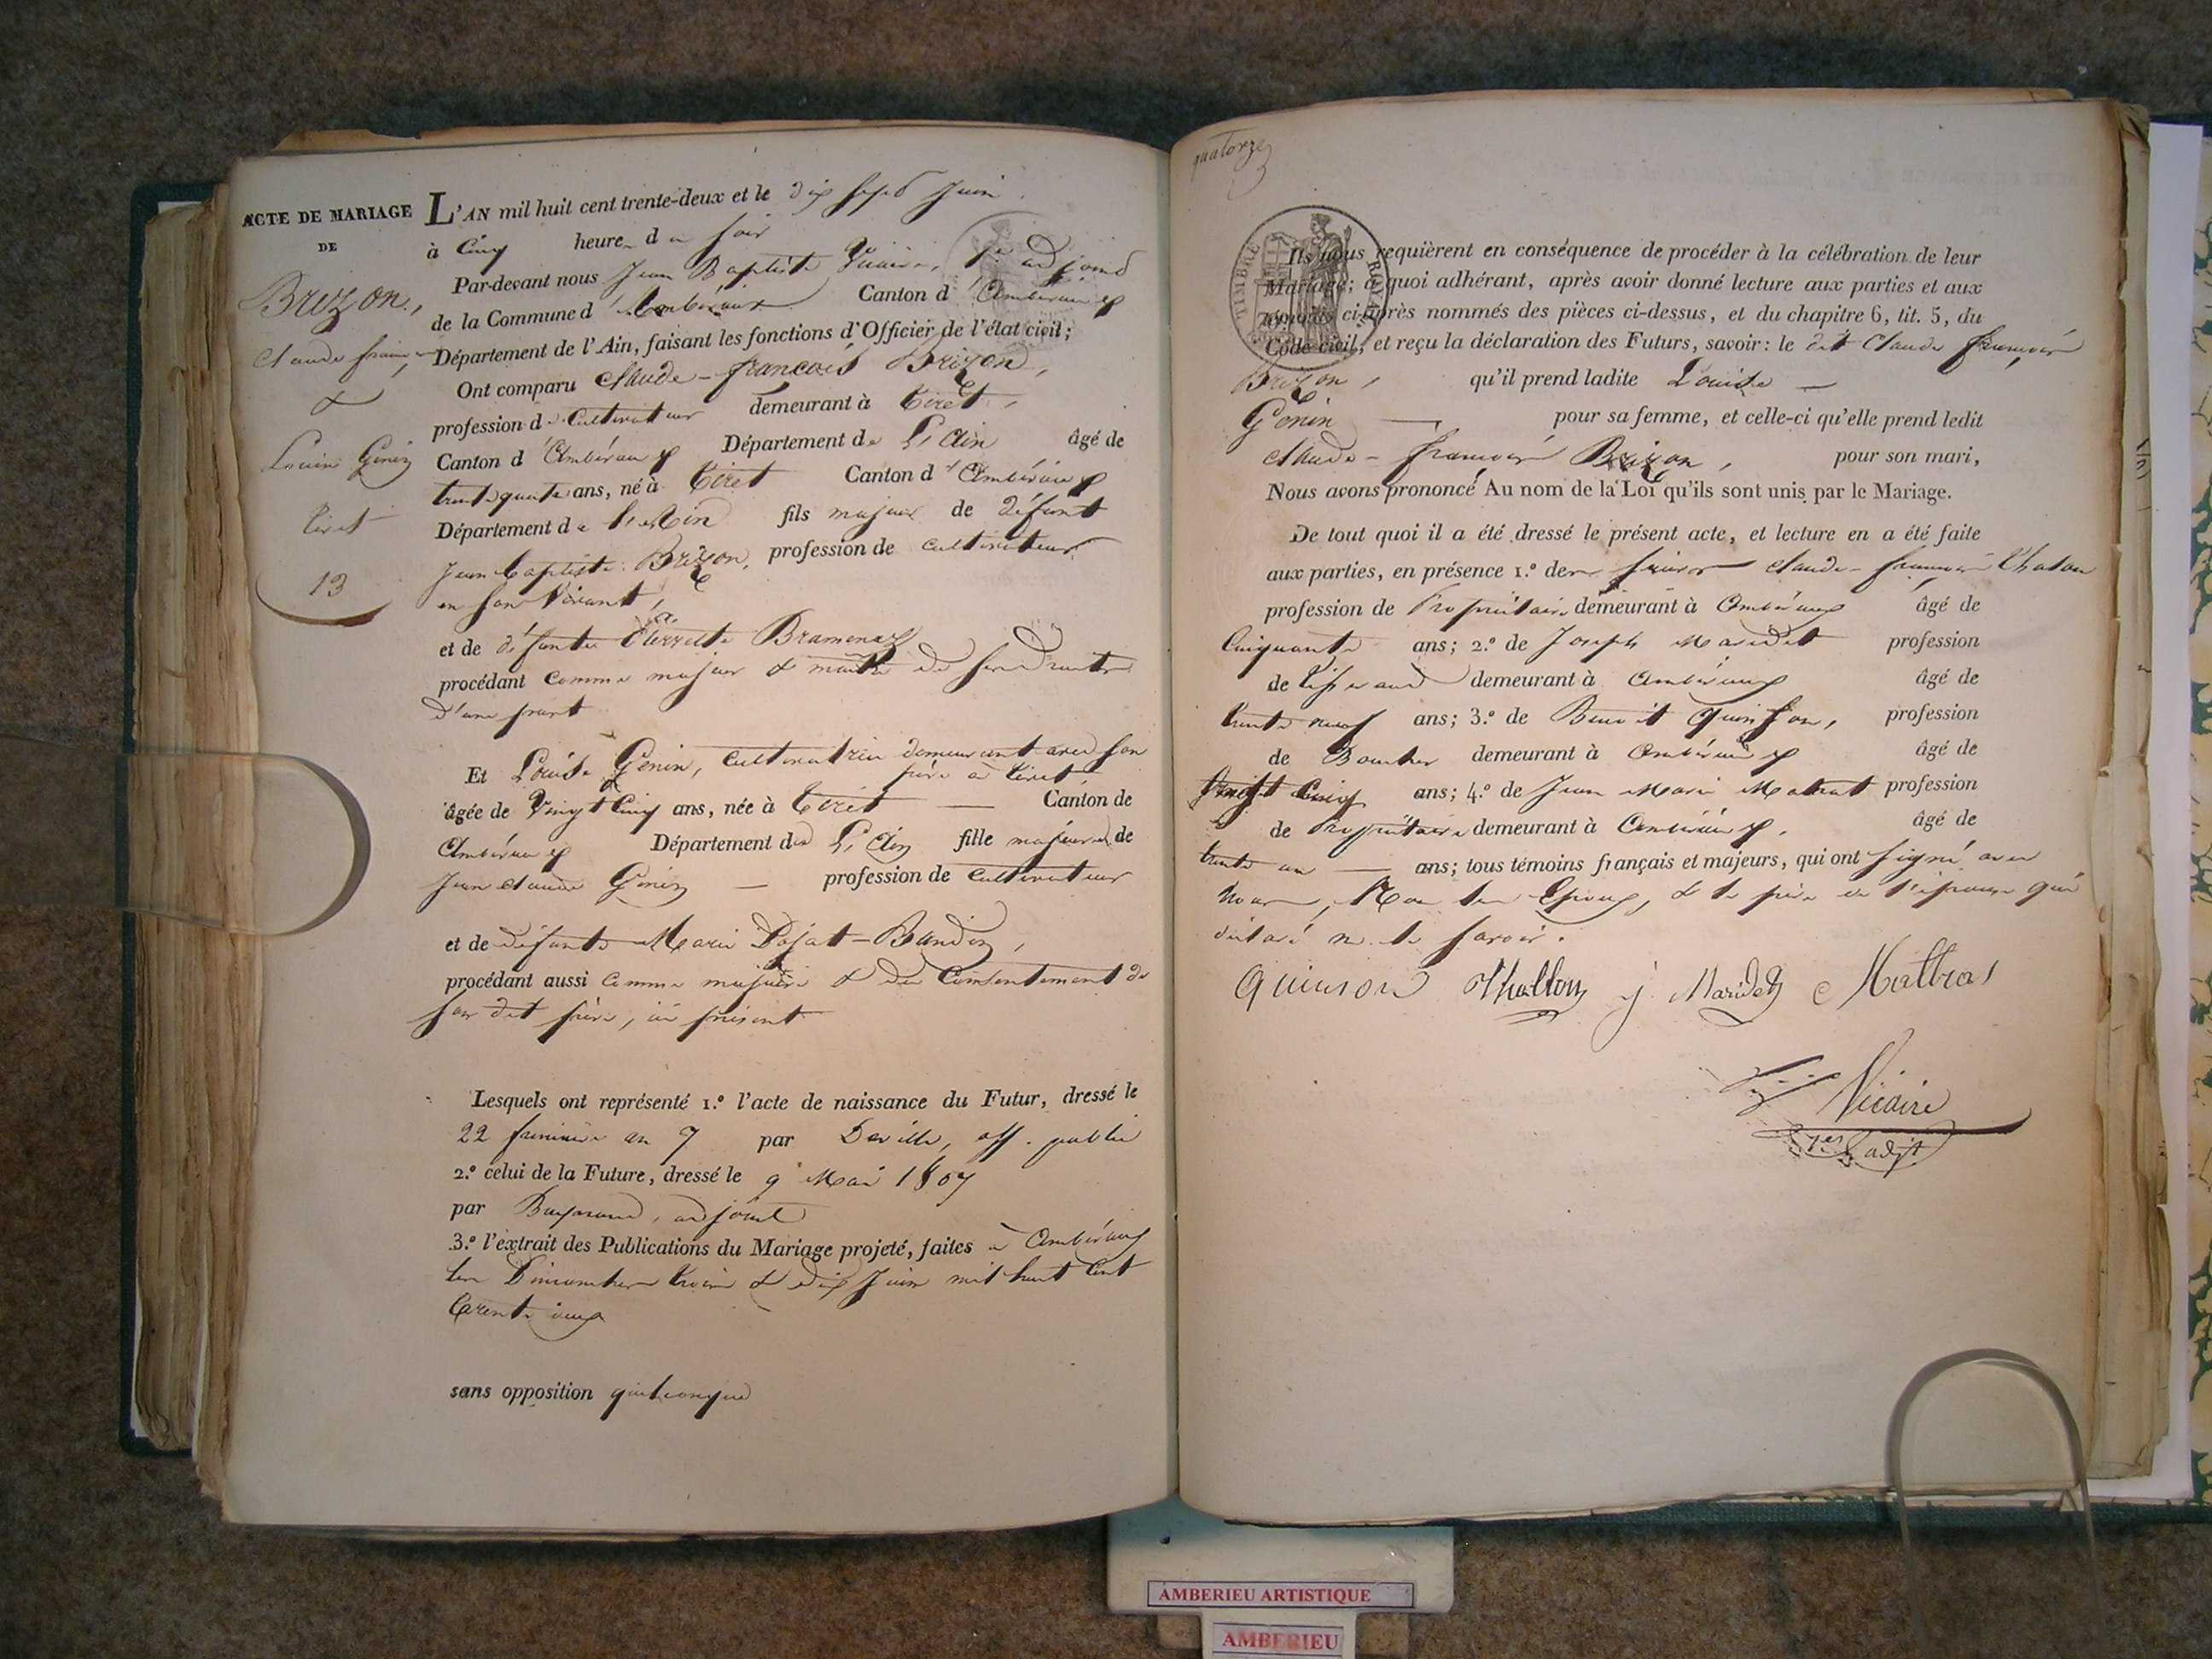 ACTE DE MARIAGE
DE
Brizon,
Claude françois
&
Louise Génin
tiret
13
L'AN mil huit cent trente-deux et le dix sept Juin
à Cinq heures du soir
Par-devant nous Jean Baptiste Vicaire, 1er adjoint
de la Commune d'Ambérieux Canton d'Ambérieux
Département de l'Ain, faisant les fonctions d'Officier de l'état civil;
Ont comparu Claude-françois Brizon,
profession de Cultivateur demeurant à tiret,
Canton d'Ambérieux Département de L'Ain âgé de
ans, né à tiret Canton d'Ambérieux
Département de l'Ain fils majeur de défunt
Jean baptiste Brizon, profession de cultivateur
en son vivant,
et de défunte Bramenaz
procédant comme majeur & maître de ses droits
d'une part
Et Louise Génin, cultivatrice demeurant avec son
père à tiret
âgée de Vingt Cinq ans, née à tiret — Canton de
Ambérieux Département de L'Ain fille majeure de
Jean Claude Génin — profession de cultivateur
et de défunte Marie Dojat-Bandin,
procédant aussi comme majeure & du Consentement de
son dit père, ici présent
Lesquels ont représenté 1.º l'acte de naissance du Futur, dressé le
22 frimaire an 7 par Deville, off. public
2.º celui de la Future, dressé le 9 Mai 1807
par adjoint
3.º l'extrait des Publications du Mariage projeté, faites à Ambérieux
les Dimanches trois & dix Juin mil huit Cent
trente deux
sans opposition quelconque
quatorze
TIMBRE ROYAL
Ils nous requièrent en conséquence de procéder à la célébration de leur
Mariage; à quoi adhérant, après avoir donné lecture aux parties et aux
témoins ci-après nommés des pièces ci-dessus, et du chapitre 6, tit. 5, du
Code civil, et reçu la déclaration des Futurs, savoir: le dit Claude françois
Brizon, qu'il prend ladite Louise —
Génin — pour sa femme, et celle-ci qu'elle prend ledit
Claude-françois Brizon, pour son mari,
Nous avons prononcé Au nom de la Loi qu'ils sont unis par le Mariage.
De tout quoi il a été dressé le présent acte, et lecture en a été faite
aux parties, en présence 1.º de Claude-françois
profession de Propriétaire demeurant à Ambérieux âgé de
Cinquante ans; 2.º de Joseph Maridet profession
de tisserand demeurant à Ambérieux âgé de
trente neuf ans; 3.º de Benoit Quinson, profession
de Boucher demeurant à Ambérieux âgé de
ans; 4.º de Jean Marie profession
de Propriétaire demeurant à Ambérieux, âgé de
trente un — ans; tous témoins français et majeurs, qui ont signé avec
nous, Non les Epoux, & le père de l'épouse qui
déclaré ne le savoir.
Quinson Thallon j. Maridet Maltras
Vicaire
1er adjt
AMBERIEU ARTISTIQUE
AMBERIEU